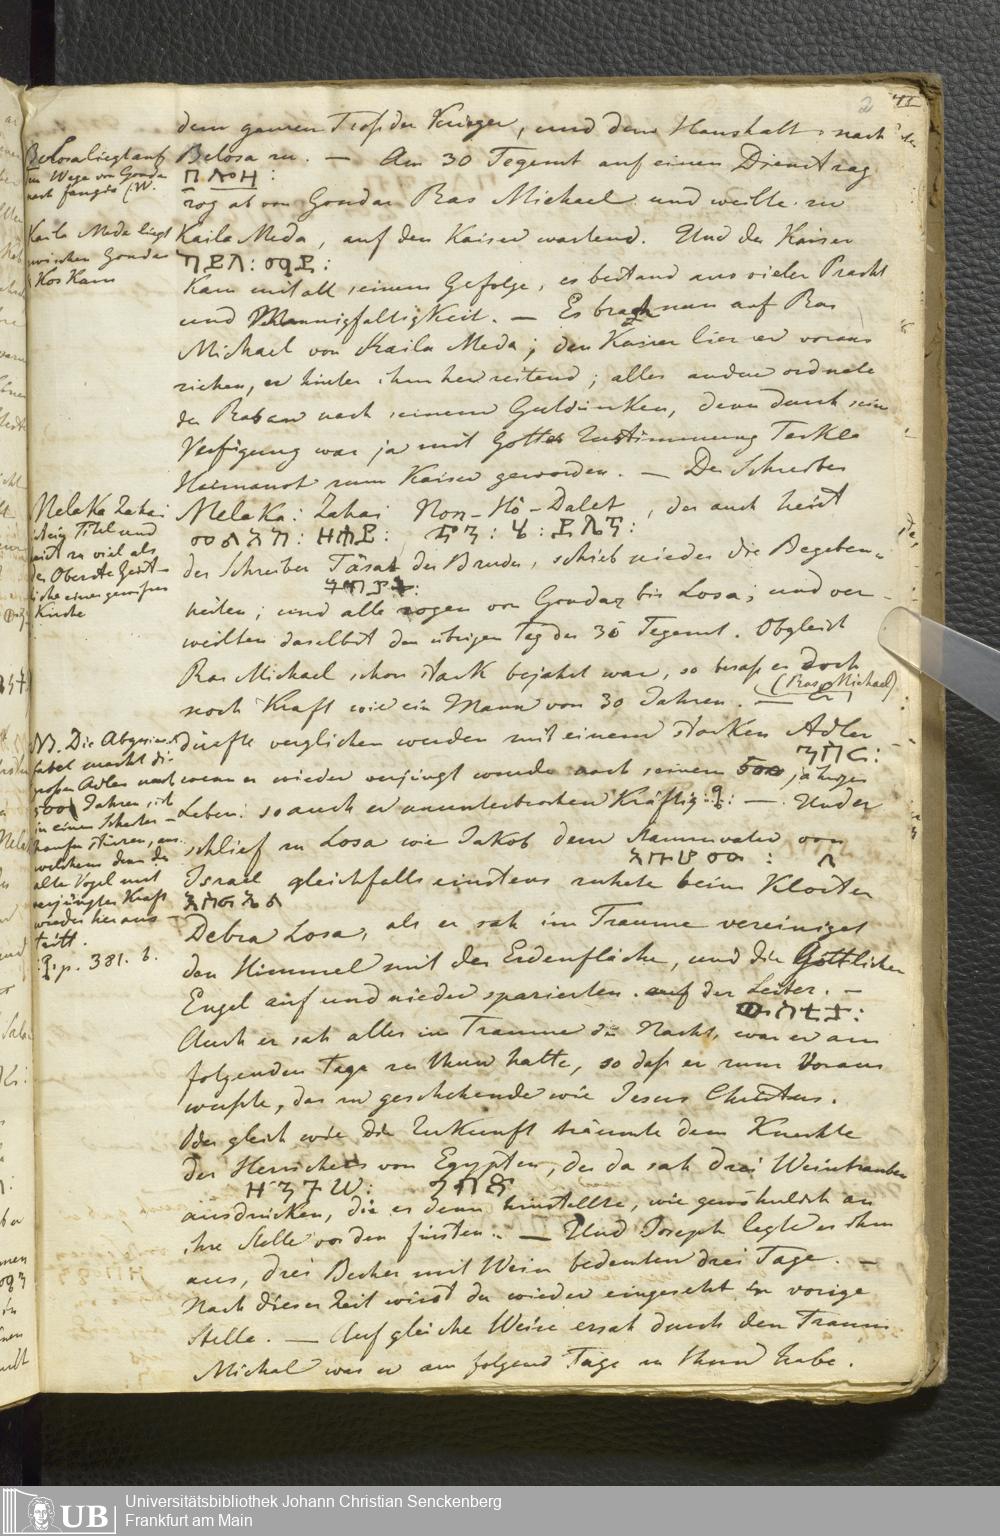 2 41
dem ganzen Troß der Krieger, und dem Haushalt, nach
Belosa zu. — Am 30 Tegemt auf einen Dienstag
zog ab von Gondar Ras Michael und weilte zu
Kaila Meda, auf den Kaiser wartend. Und der Kaiser
kam mit all seinem Gefolge, es bestand aus vieler Pracht
und Mannigfaltigkeit. — Es brach nun auf Ras
Michael von Kaila Meda; den Kaiser lies er voraus
ziehen, er hinter ihm her reitend; alles andere ordnete
der nach seinem Gutdünken, denn durch sein
Verfügung war ja mit Gottes Zustimmung Tekle
Haimanot zum Kaiser geworden. — Der Schreiber
Melaka: Zahai Non-Hò-Dalet, der auch heist
der Schreiber der Bruder, schrieb nieder die Begeben-
heiten; und alle zogen von Gondar bis Losa, und ver-
weilten daselbst den übrigen Tag des 30 Tegemt. Obgleich
Ras Michael schon stark bejahrt war, so besaß er doch
noch Kraft wie ein Mann von 30 Jahren. — Er
(Ras Michael)
dürfte verglichen werden mit einem starken Adler
wenn er wieder verjüngt wurde nach seinem 500 jährigen
Leben: so auch er ununterbrochen kräftig. — Under
schlief zu Losa wie Jakob dem Stammvater von
Israel gleichfalls einstens ruhete beim Kloster
Debra Losa, als er sah im Traume vereiniget
den Himmel mit der Erdenfläche, und die Göttlichen
Engel auf und nieder spazierten auf der Leiter. —
Auch er sah alles im Traume die Nacht, was er am
folgenden Tage zu thun hatte, so daß er zum Voraus
wußte, das zu geschehende wie Jesus Christus.
Oder gleich wie die Zukunft träumte dem Knechte
des Herrschers von Egypten, der da sah drei Weintrauben
ausdrücken, die er denn hinstellte, wie gewöhnlich an
ihre Stelle vor den Fürsten. — Und Joseph legte es ihm
aus, drei Becher mit Wein bedeuten drei Tage. —
Nach dieser Zeit wirst du wieder eingesetzt in vorige
Stelle. — Auf gleiche Weise ersah durch den Traum
Michael was er am folgend Tage zu thun habe.
Belosa liegt auf
dem Wege von Gonda
nach
Kaila Meda liegt
zwischen Gondar
Kos Kam
Melaka Zahai
ist ein Titel und
heist so viel als
der Oberste Geist-
liche einer gewissen
Kirche
NB. Die
fabel macht die
großen Adler nach
500 Jahren, sich
in einen Scheiter-
haufen stürzen, aus
welchem denn der
alte Vogel mit
verjüngter Kraft
wieder heraus-
tritt.
p. 381. b.
UB
Universitätsbibliothek Johann Christian Senckenberg
Frankfurt am Main